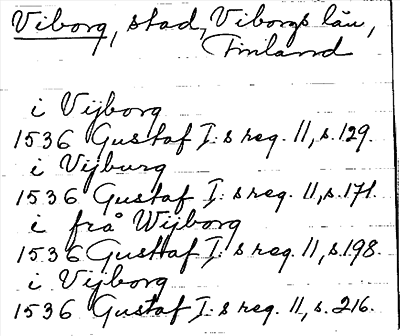 Viborg, stad, Viborgs län,
Finland
i Vijborg
1536 Gustaf I:s reg. 11, s. 129.
i Vijburg
1536 Gustaf I:s reg. 11, s. 171.
i frå Wijborg
1536 Gustaf I:s reg. 11, s. 198.
i Vijborg
1536 Gustaf I:s reg. 11, s. 216.